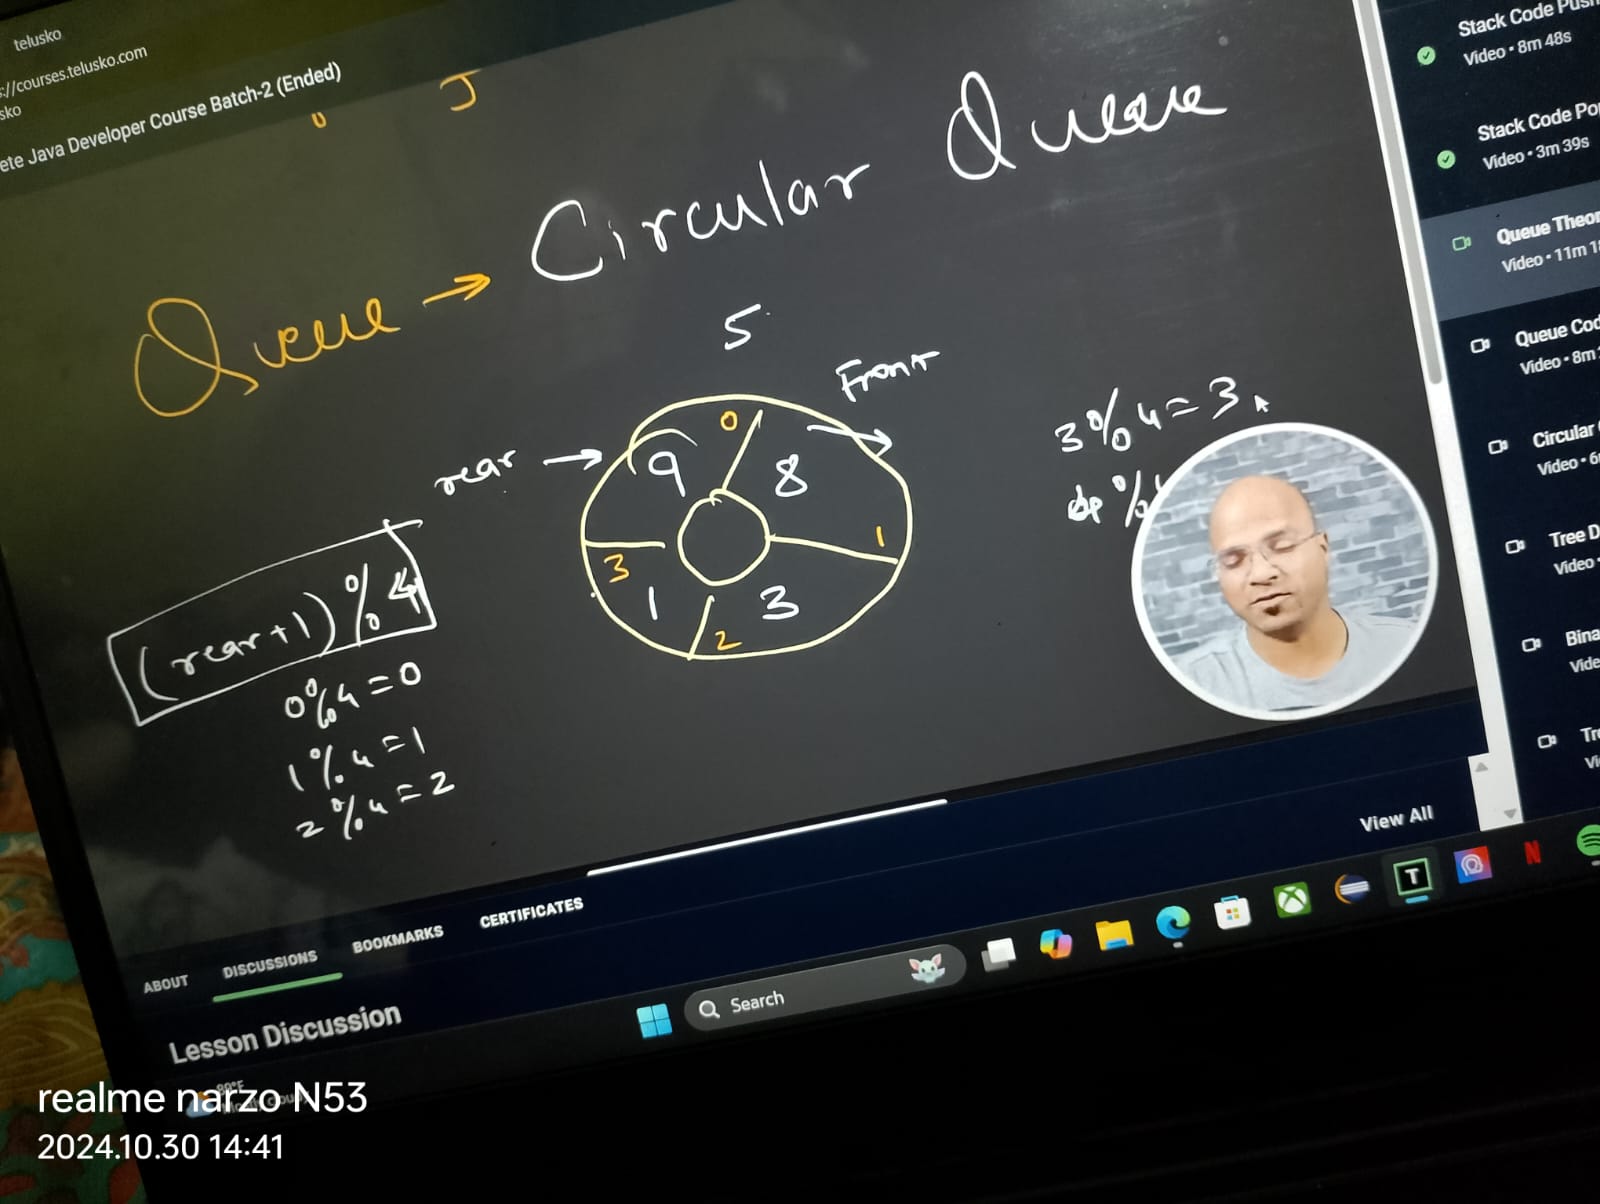 telusko
://courses.telusko.com
sko
ete Java Developer Course Batch-2 (Ended)
Queue → Circular Queue
5
Front
rear →
0
9
8
1
3
1
3
2
(rear+1) % 4
0%4=0
1%4=1
2%4=2
3%4=3
Stack Code Push
Video • 8m 48s
Stack Code Pop
Video • 3m 39s
Queue Theor
Video • 11m 1
Queue Cod
Video • 8m
Circular
Video • 6
Tree D
Video
Bina
Vide
Tr
Vi
View All
ABOUT
DISCUSSIONS
BOOKMARKS
CERTIFICATES
Lesson Discussion
Search
T
N
realme narzo N53
2024.10.30 14:41